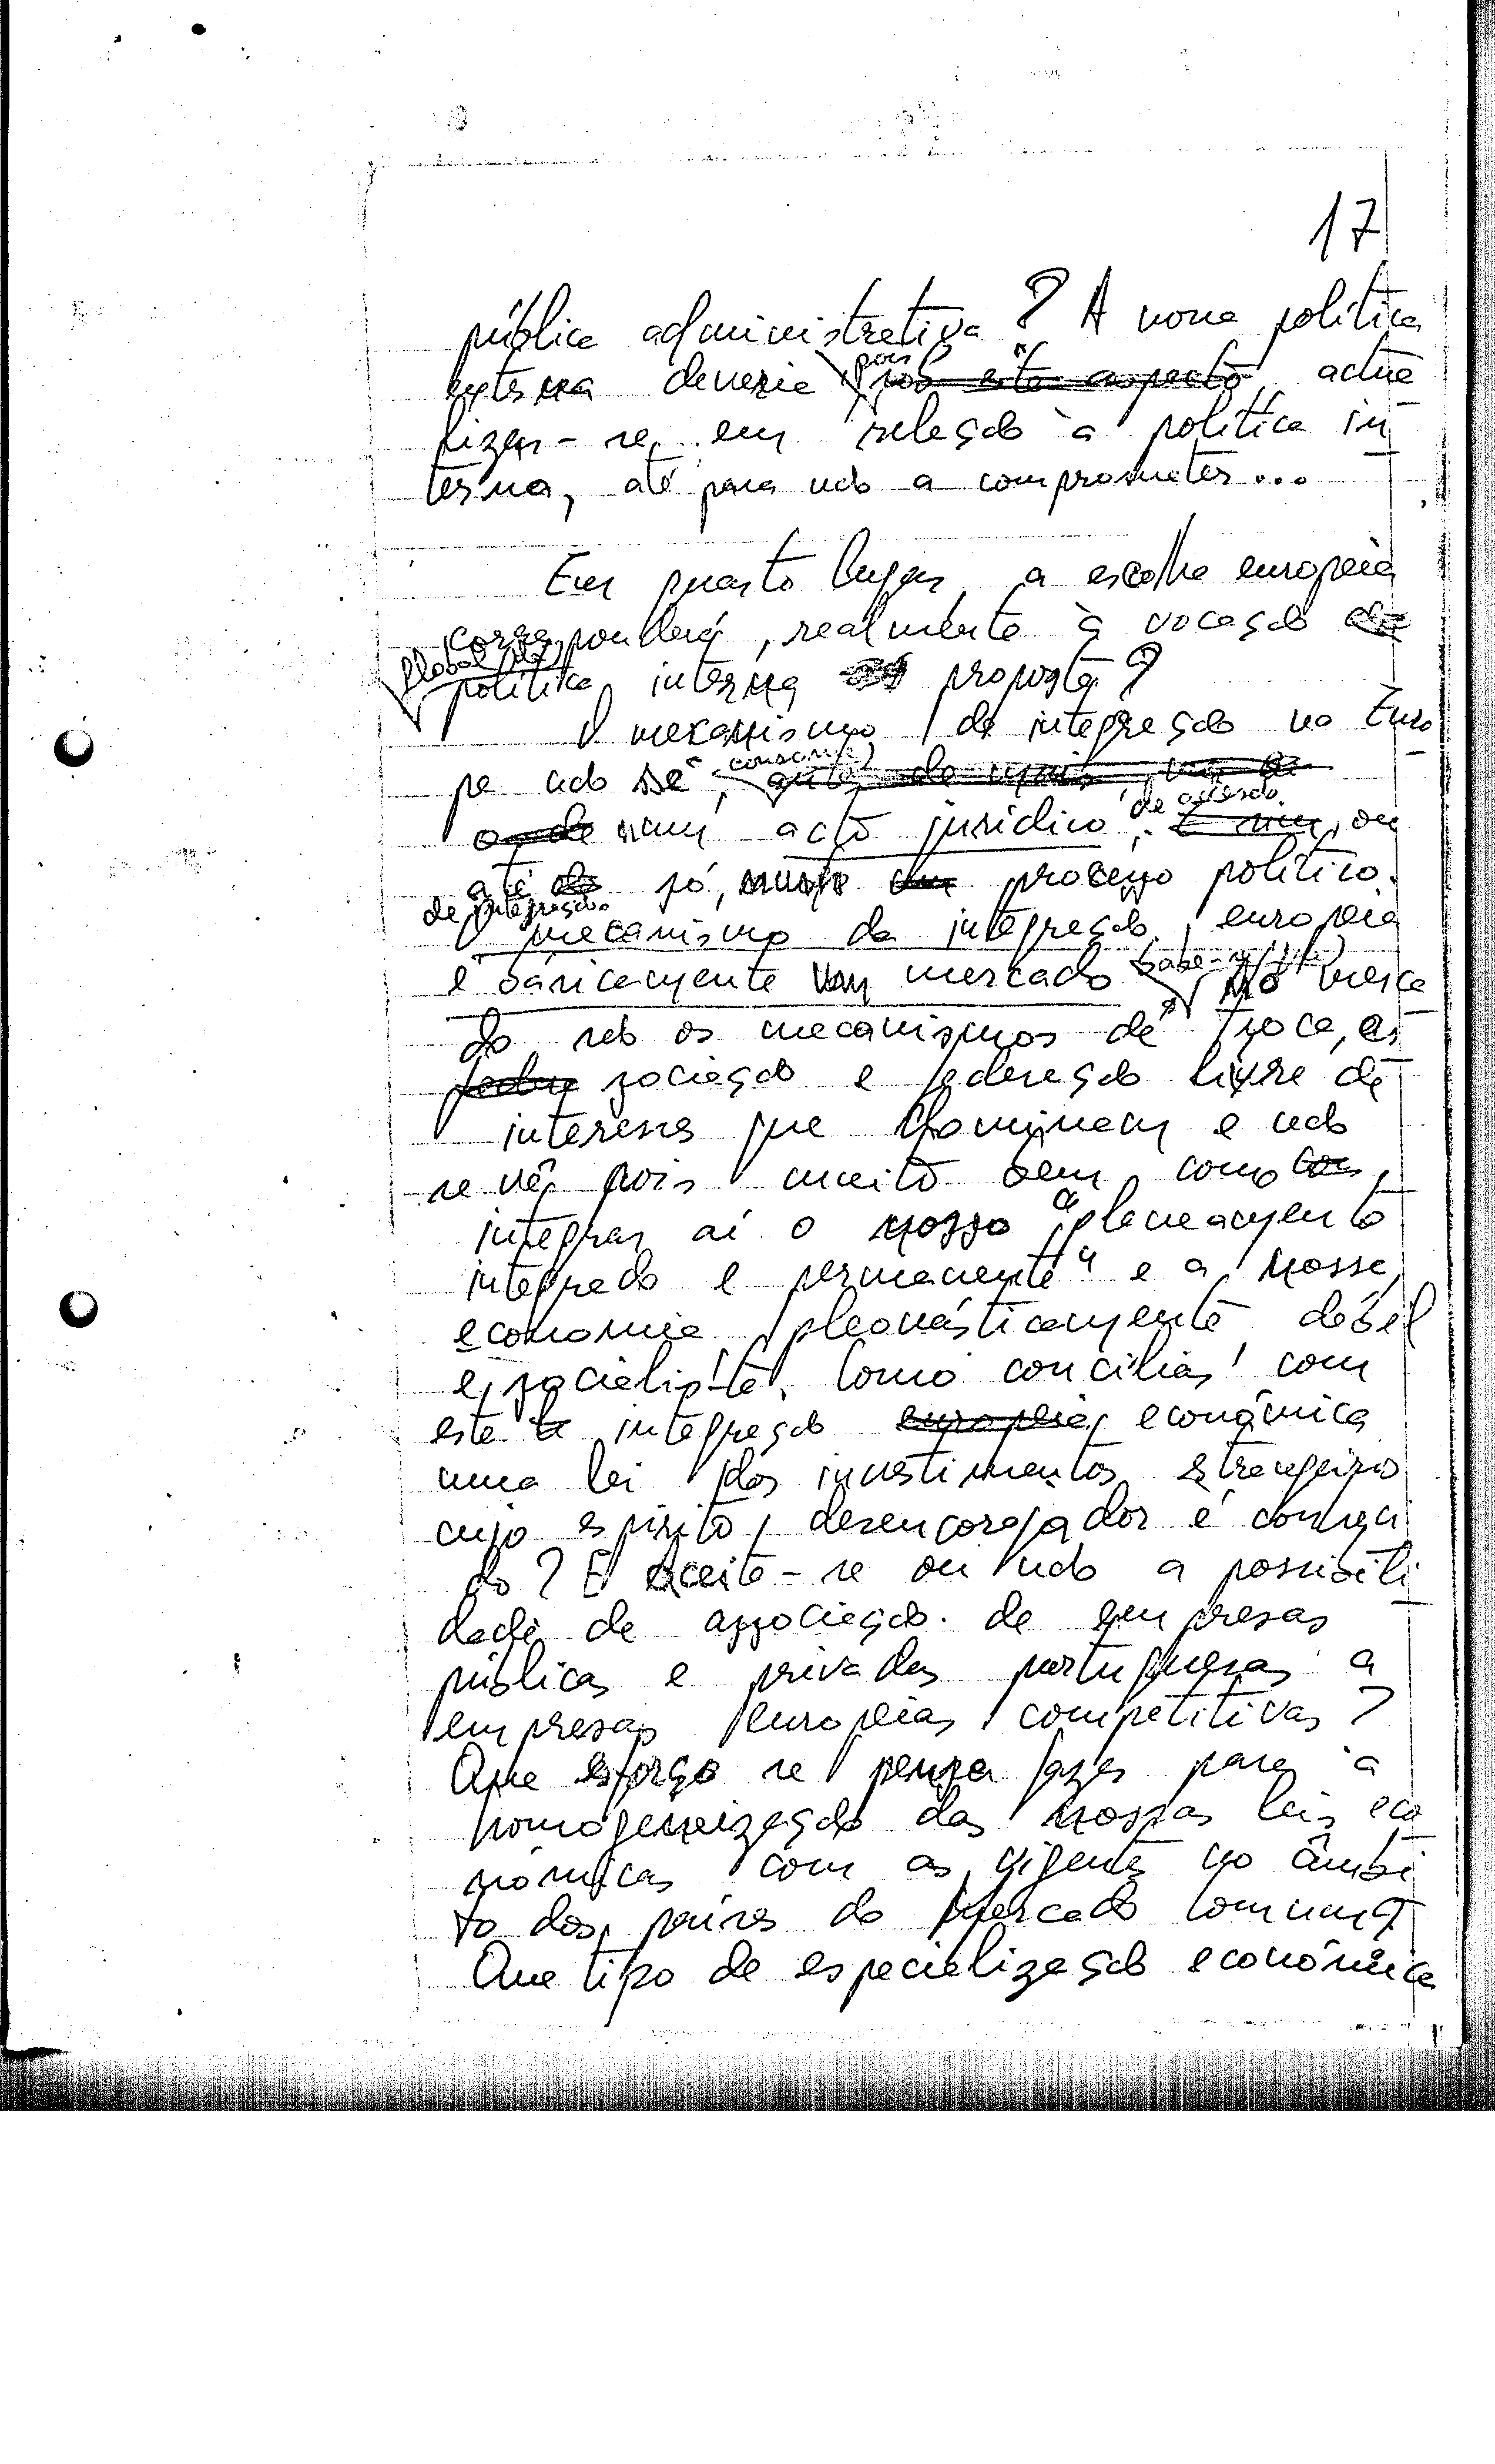 17
pública administrativa? A nova política
externa deveria pois sob este aspecto, actua
lizar-se, em relação à política in
terna, até para não a comprometer...
Em quarto lugar, a escolha europeia
corresponderá, realmente à vocação da
global da
política interna proposta?
O mecanismo de integração na Euro
pa não se consome,
num acto jurídico de adesão, ou
até só, num processo político
de integração.
O mecanismo da integração europeia
é basicamente um mercado No merca
do são os mecanismos de troca, as
sociação e federação livre de
interesses que dominam e não
se vê pois muito bem, como
integrar aí o nosso "planeamento
integrado e permanente" e a nossa
economia pleonásticamente débil
e socialista. Como conciliar com
esta integração europeia, económica
uma lei dos investimentos estrangeiros
cujo espírito, desencorajador é conheci
do? E Aceita-se ou não a possibili
dade de associação de empresas
públicas e privadas portuguesas a
empresas europeias competitivas?
Que esforço se pensa fazer para a
homogeneização das nossas leis eco
nómicas com as vigentes no âmbi
to dos países do Mercado Comum?
Que tipo de especialização económica